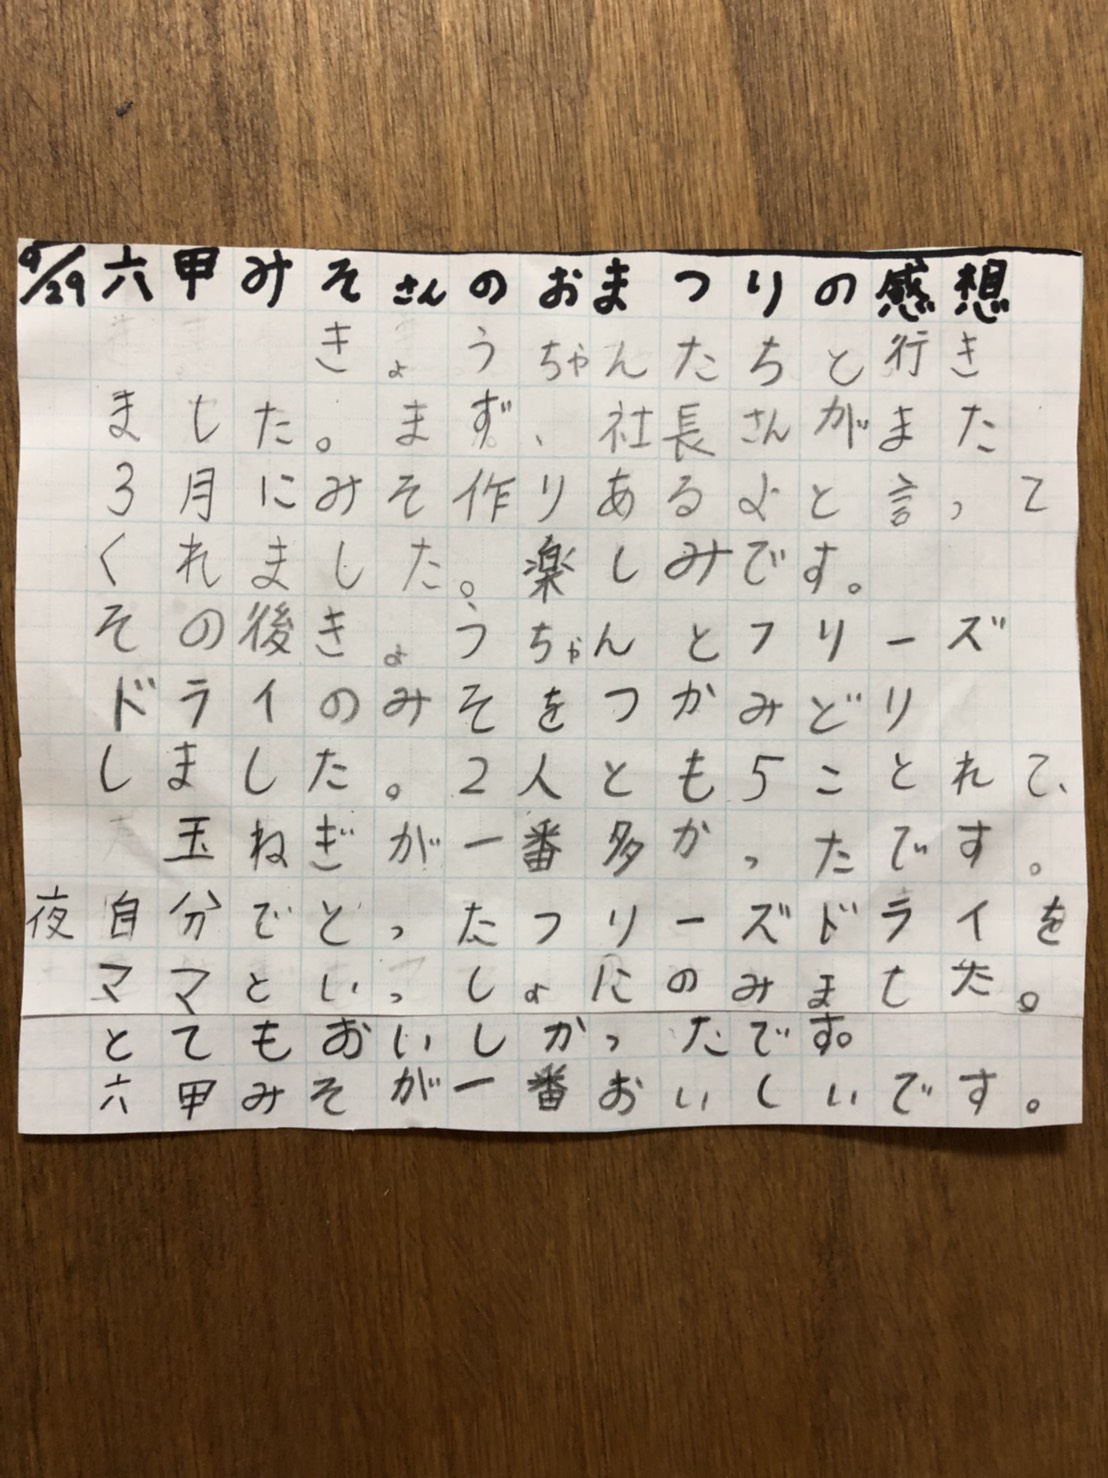 9/29 六甲みそさんのおまつりの感想
きょうちゃんたちと行き
ました。まず、社長さんがまた
3月にみそ作りあるよと言って
くれました。楽しみです。
その後きょうちゃんとフリーズ
ドライのみそをつかみどり
しました。2人とも5ことれて、
玉ねぎが一番多かったです。
夜自分でとったフリーズドライを
ママといっしょにのみました。
とてもおいしかったです。
六甲みそが一番おいしいです。